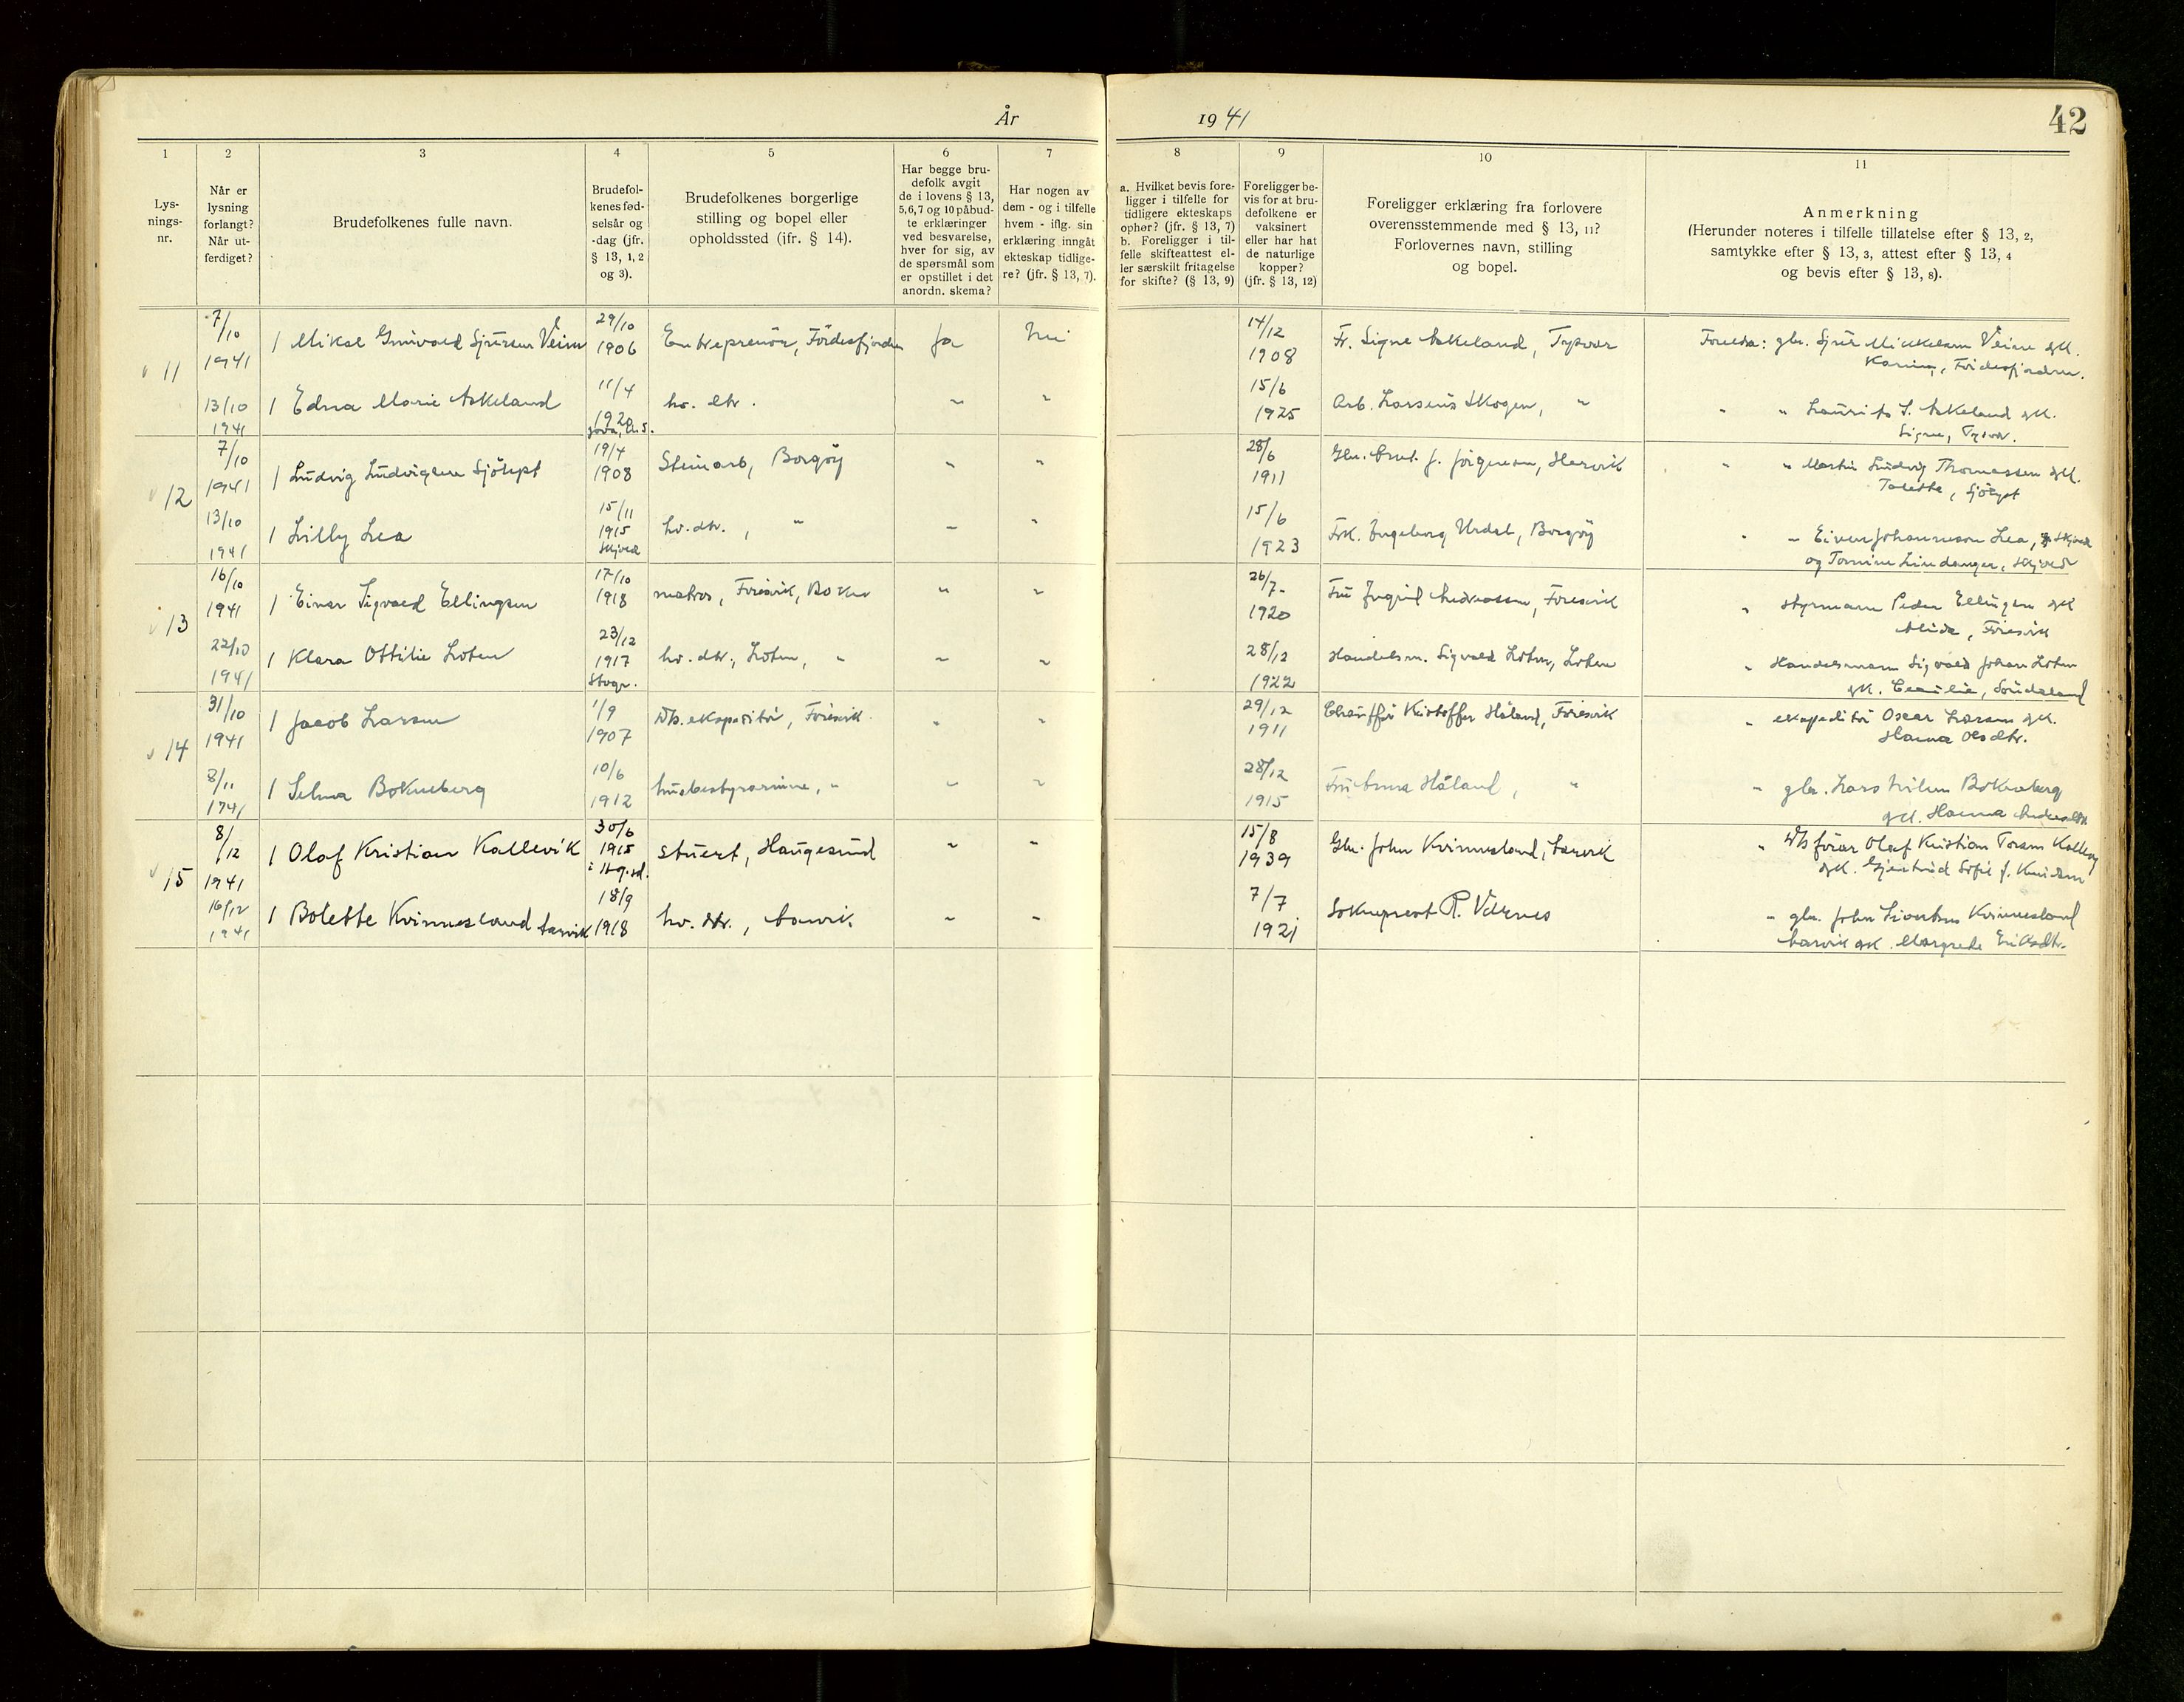 År 1941
42
1 2 3 4 5 6 7 8 9 10 11
Lys-
nings-
nr.
Når er
lysning
forlangt?
Når ut-
ferdiget?
Brudefolkenes fulle navn.
Brudefol-
kenes fød-
selsår og
-dag (jfr.
§ 13, 1, 2
og 3).
Brudefolkenes borgerlige
stilling og bopel eller
opholdssted (jfr. § 14).
Har begge bru-
defolk avgit
de i lovens § 13,
5, 6, 7 og 10 påbud-
te erklæringer
ved besvarelse,
hver for sig, av
de spørsmål som
er opstillet i det
anordn. skema?
Har nogen av
dem - og i tilfelle
hvem - iflg. sin
erklæring inngått
ekteskap tidlige-
re? (jfr. § 13, 7).
a. Hvilket bevis fore-
ligger i tilfelle for
tidligere ekteskaps
ophør? (jfr. § 13, 7)
b. Foreligger i til-
felle skifteattest el-
ler særskilt fritagelse
for skifte? (§ 13, 9)
Foreligger be-
vis for at bru-
defolkene er
vaksinert
eller har hat
de naturlige
kopper?
(jfr. § 13, 12)
Foreligger erklæring fra forlovere
overensstemmende med § 13, 11?
Forlovernes navn, stilling
og bopel.
Anmerkning
(Herunder noteres i tilfelle tillatelse efter § 13, 2,
samtykke efter § 13, 3, attest efter § 13, 4
og bevis efter § 13, 8).
11
7/10
1941
1 Mikal Grinvald Sjursen Veim
29/10
1906
Entreprenör, Fördesfjorden
Ja
Nei
14/12
1908
Fr. Signe Askeland, Tysvær
Foreldra: gbr. Sjur Mikkelsen Veim gk.
Karina, Fördesfjorden.
13/10
1941
1 Edna Marie Askeland
11/4
1920
hv. dtr. " "
15/6
1925
Arb. Larsens Skogen, "
" " Laurits S. Askeland gk.
Signe, Tysvær.
12
7/10
1941
1 Ludvig Ludvigsen Sjölyst
19/4
1908
Steinarb, Borgöy " "
28/6
1911
J. Jörgensen, Hervik
" " Martin Ludvig Thomassen gk.
Sjölyst
13/10
1941
1 Lilly Lea
15/11
1915
Skjold
hv. dtr. , " " "
15/6
1923
Frk. Ingeborg Urdal, Borgöy
" " Johannessen Lea, Skjold
og Tomine Lindanger, Skjold
13
16/10
1941
1 Einar Sigvald Ellingsen
17/10
1918
matros, Foresvik, Bokn " "
26/7
1920
Fru Ingrid Andreassen, Foresvik
" styrmann Peder Ellingsen gk
Alida, Foresvik
22/10
1941
1 Klara Ottilie Loten
23/12
1917
hv. dtr., Loten, " " "
28/12
1922
Handelsm. Sigvald Loten, Loten
" Handelsmann Sigvald Johan Loten
gk. Cecilie,
14
31/10
1941
1 Jacob Larsen
1/9
1907
D/s. ekspeditör, Foresvik " "
29/12
1911
Chaufför Kristoffer Håland, Foresvik
" ekspeditör Oscar Larsen gk.
Hanna Olsdtr.
8/11
1941
1 Selma Bokneberg
10/6
1912
husbestyrarinne, " " "
28/12
1915
Fru Anna Håland, "
" gbr. Lars Nilsen Bokneberg
gk. Hanna
15
8/12
1941
1 Olaf Kristian Kallevik
30/6
1915
i Hg.sd.
stuert, Haugesund " "
15/8
1939
Gbr. John Kvinnesland, Aarvik
" D/s förar Olaf Kristian
gk. Gjertrud Sofie f. Knudsen
16/12
1941
1 Bolette Kvinnesland Aarvik
18/9
1918
hv. dtr., Aarvik " "
7/7
1921
Sokneprest R. Værnes
" gbr. John Kvinnesland
Aarvik gk. Margrete Eriksdtr.